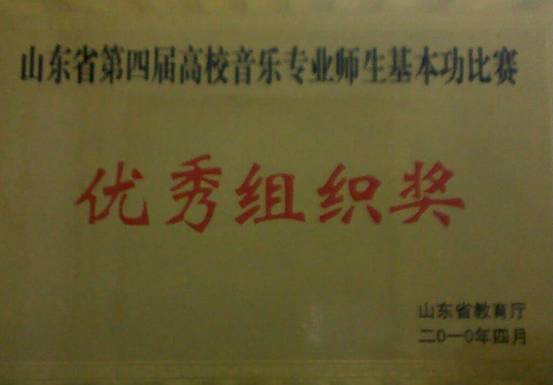 山东省第四届高校音乐专业师生基本功比赛
优秀组织奖
山东省教育厅
二〇一〇年四月